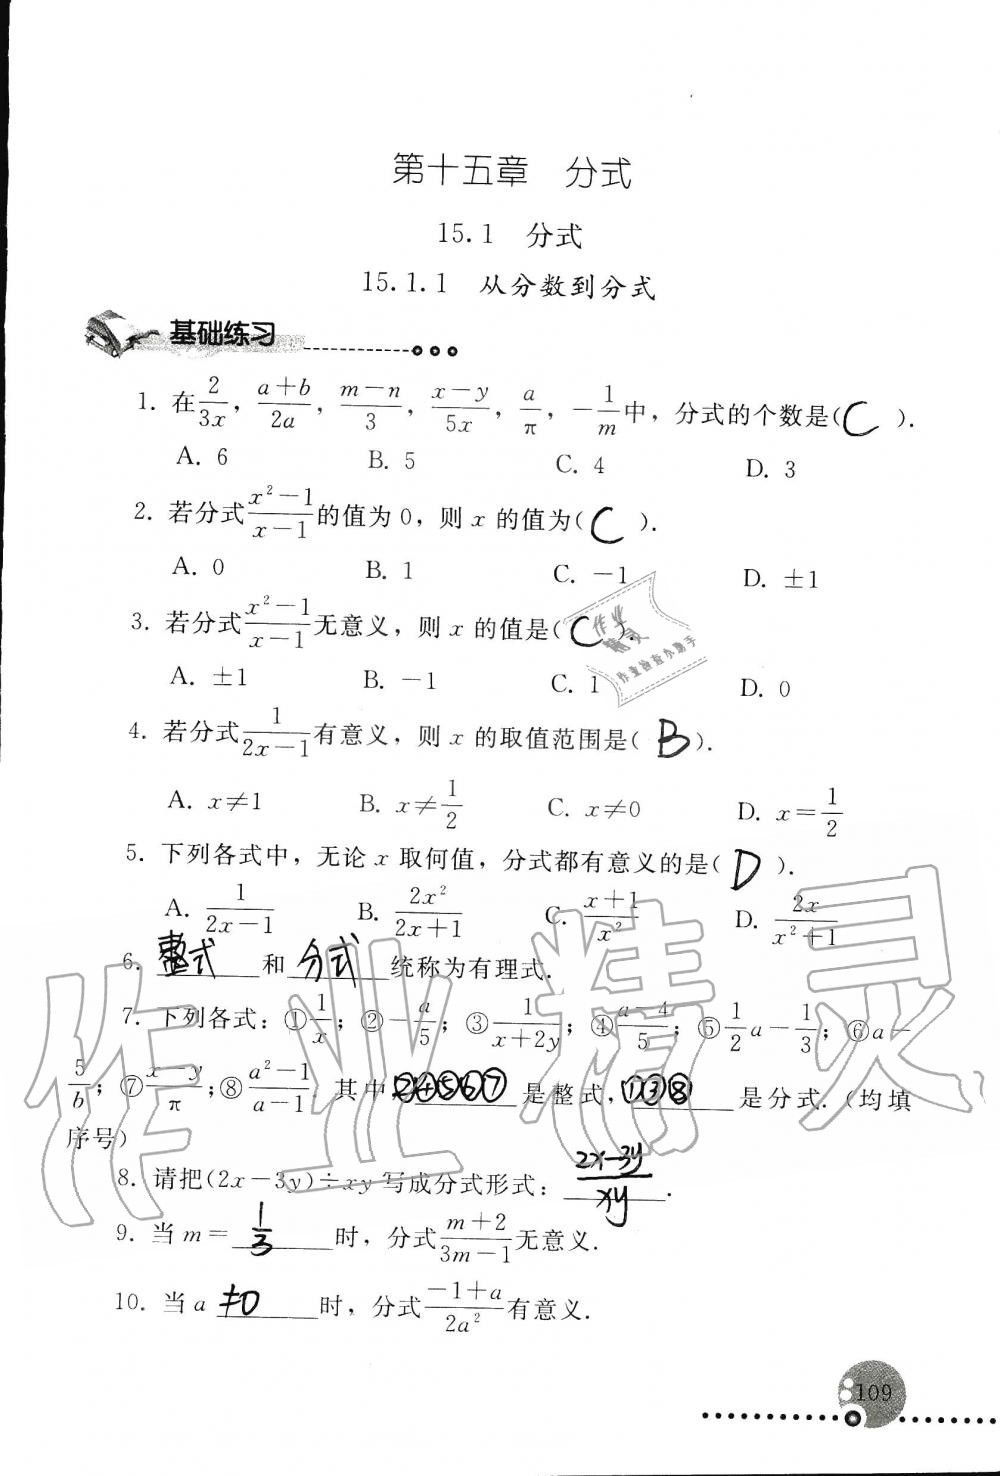 第十五章 分式
15.1 分式
15.1.1 从分数到分式
基础练习
1. 在2/(3x), (a+b)/(2a), (m-n)/3, (x-y)/(5x), a/π, -1/m中,分式的个数是(C).
A. 6 B. 5 C. 4 D. 3
2. 若分式(x²-1)/(x-1)的值为0,则x的值为(C).
A. 0 B. 1 C. -1 D. ±1
3. 若分式(x²-1)/(x-1)无意义,则x的值是(C).
A. ±1 B. -1 C. 1 D. 0
4. 若分式1/(2x-1)有意义,则x的取值范围是(B).
A. x≠1 B. x≠1/2 C. x≠0 D. x=1/2
5. 下列各式中,无论x取何值,分式都有意义的是(D).
A. 1/(2x-1) B. 2x²/(2x+1) C. (x+1)/x² D. 2x/(x²+1)
6. 整式和分式统称为有理式.
7. 下列各式:①1/x;②-a/5;③1/(x+2y);④(a-4)/5;⑤1/2a-1/3;⑥a-
5/b;⑦(x-y)/π;⑧(a²-1)/(a-1). 其中②④⑤⑥⑦是整式,①③⑧是分式.(均填
序号)
8. 请把(2x-3y)÷xy写成分式形式:(2x-3y)/xy.
9. 当m=1/3时,分式(m+2)/(3m-1)无意义.
10. 当a≠0时,分式(-1+a)/(2a²)有意义.
109
作业精灵
作业精灵
作业检查小助手